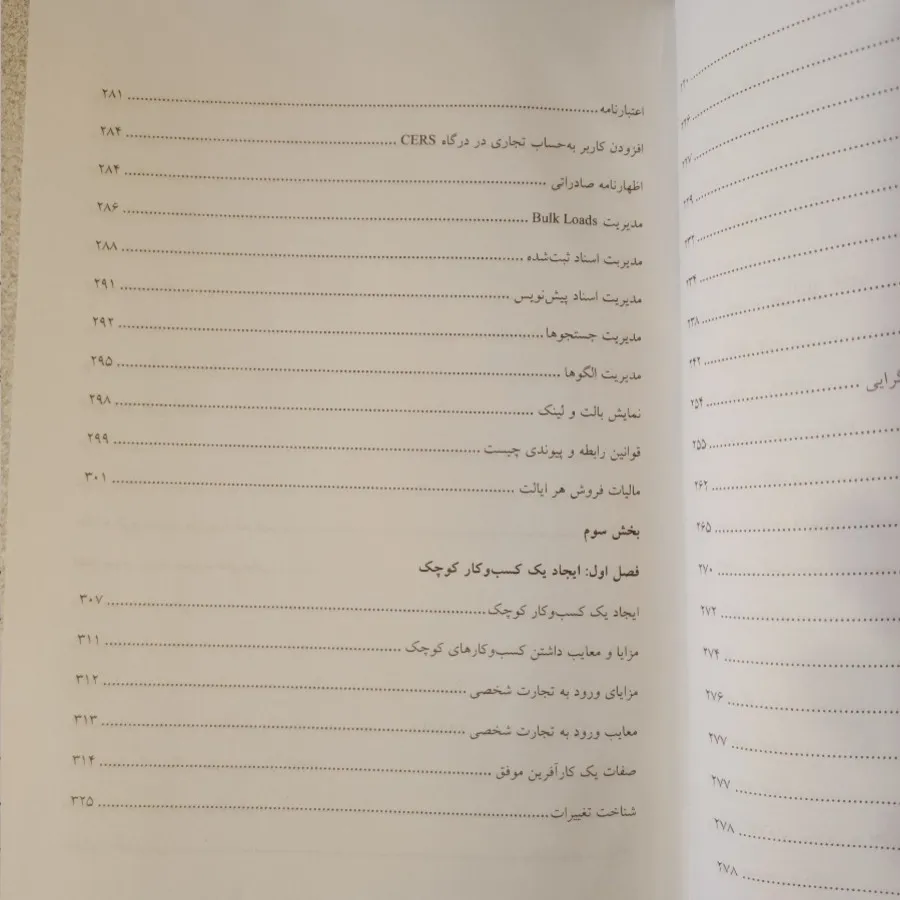 اعتبارنامه ۲۸۱
افزودن کاربر به‌حساب تجاری در درگاه CERS ۲۸۴
اظهارنامه صادراتی ۲۸۴
مدیریت Bulk Loads ۲۸۶
مدیریت اسناد ثبت‌شده ۲۸۸
مدیریت اسناد پیش‌نویس ۲۹۱
مدیریت جستجوها ۲۹۲
مدیریت الگوها ۲۹۵
نمایش بالت و لینک ۲۹۸
قوانین رابطه و پیوندی چیست ۲۹۹
مالیات فروش هر ایالت ۳۰۱
بخش سوم
فصل اول: ایجاد یک کسب‌وکار کوچک
ایجاد یک کسب‌وکار کوچک ۳۰۷
مزایا و معایب داشتن کسب‌وکارهای کوچک ۳۱۱
مزایای ورود به تجارت شخصی ۳۱۲
معایب ورود به تجارت شخصی ۳۱۳
صفات یک کارآفرین موفق ۳۱۴
شناخت تغییرات ۳۲۵
۲۲۶
۲۲۷
۲۲۹
۲۳۲
۲۳۴
۲۳۸
۲۴۲
۲۵۴
۲۵۵
۲۶۲
۲۶۵
۲۷۰
۲۷۲
۲۷۴
۲۷۶
۲۷۷
۲۷۷
۲۷۸
۲۷۸